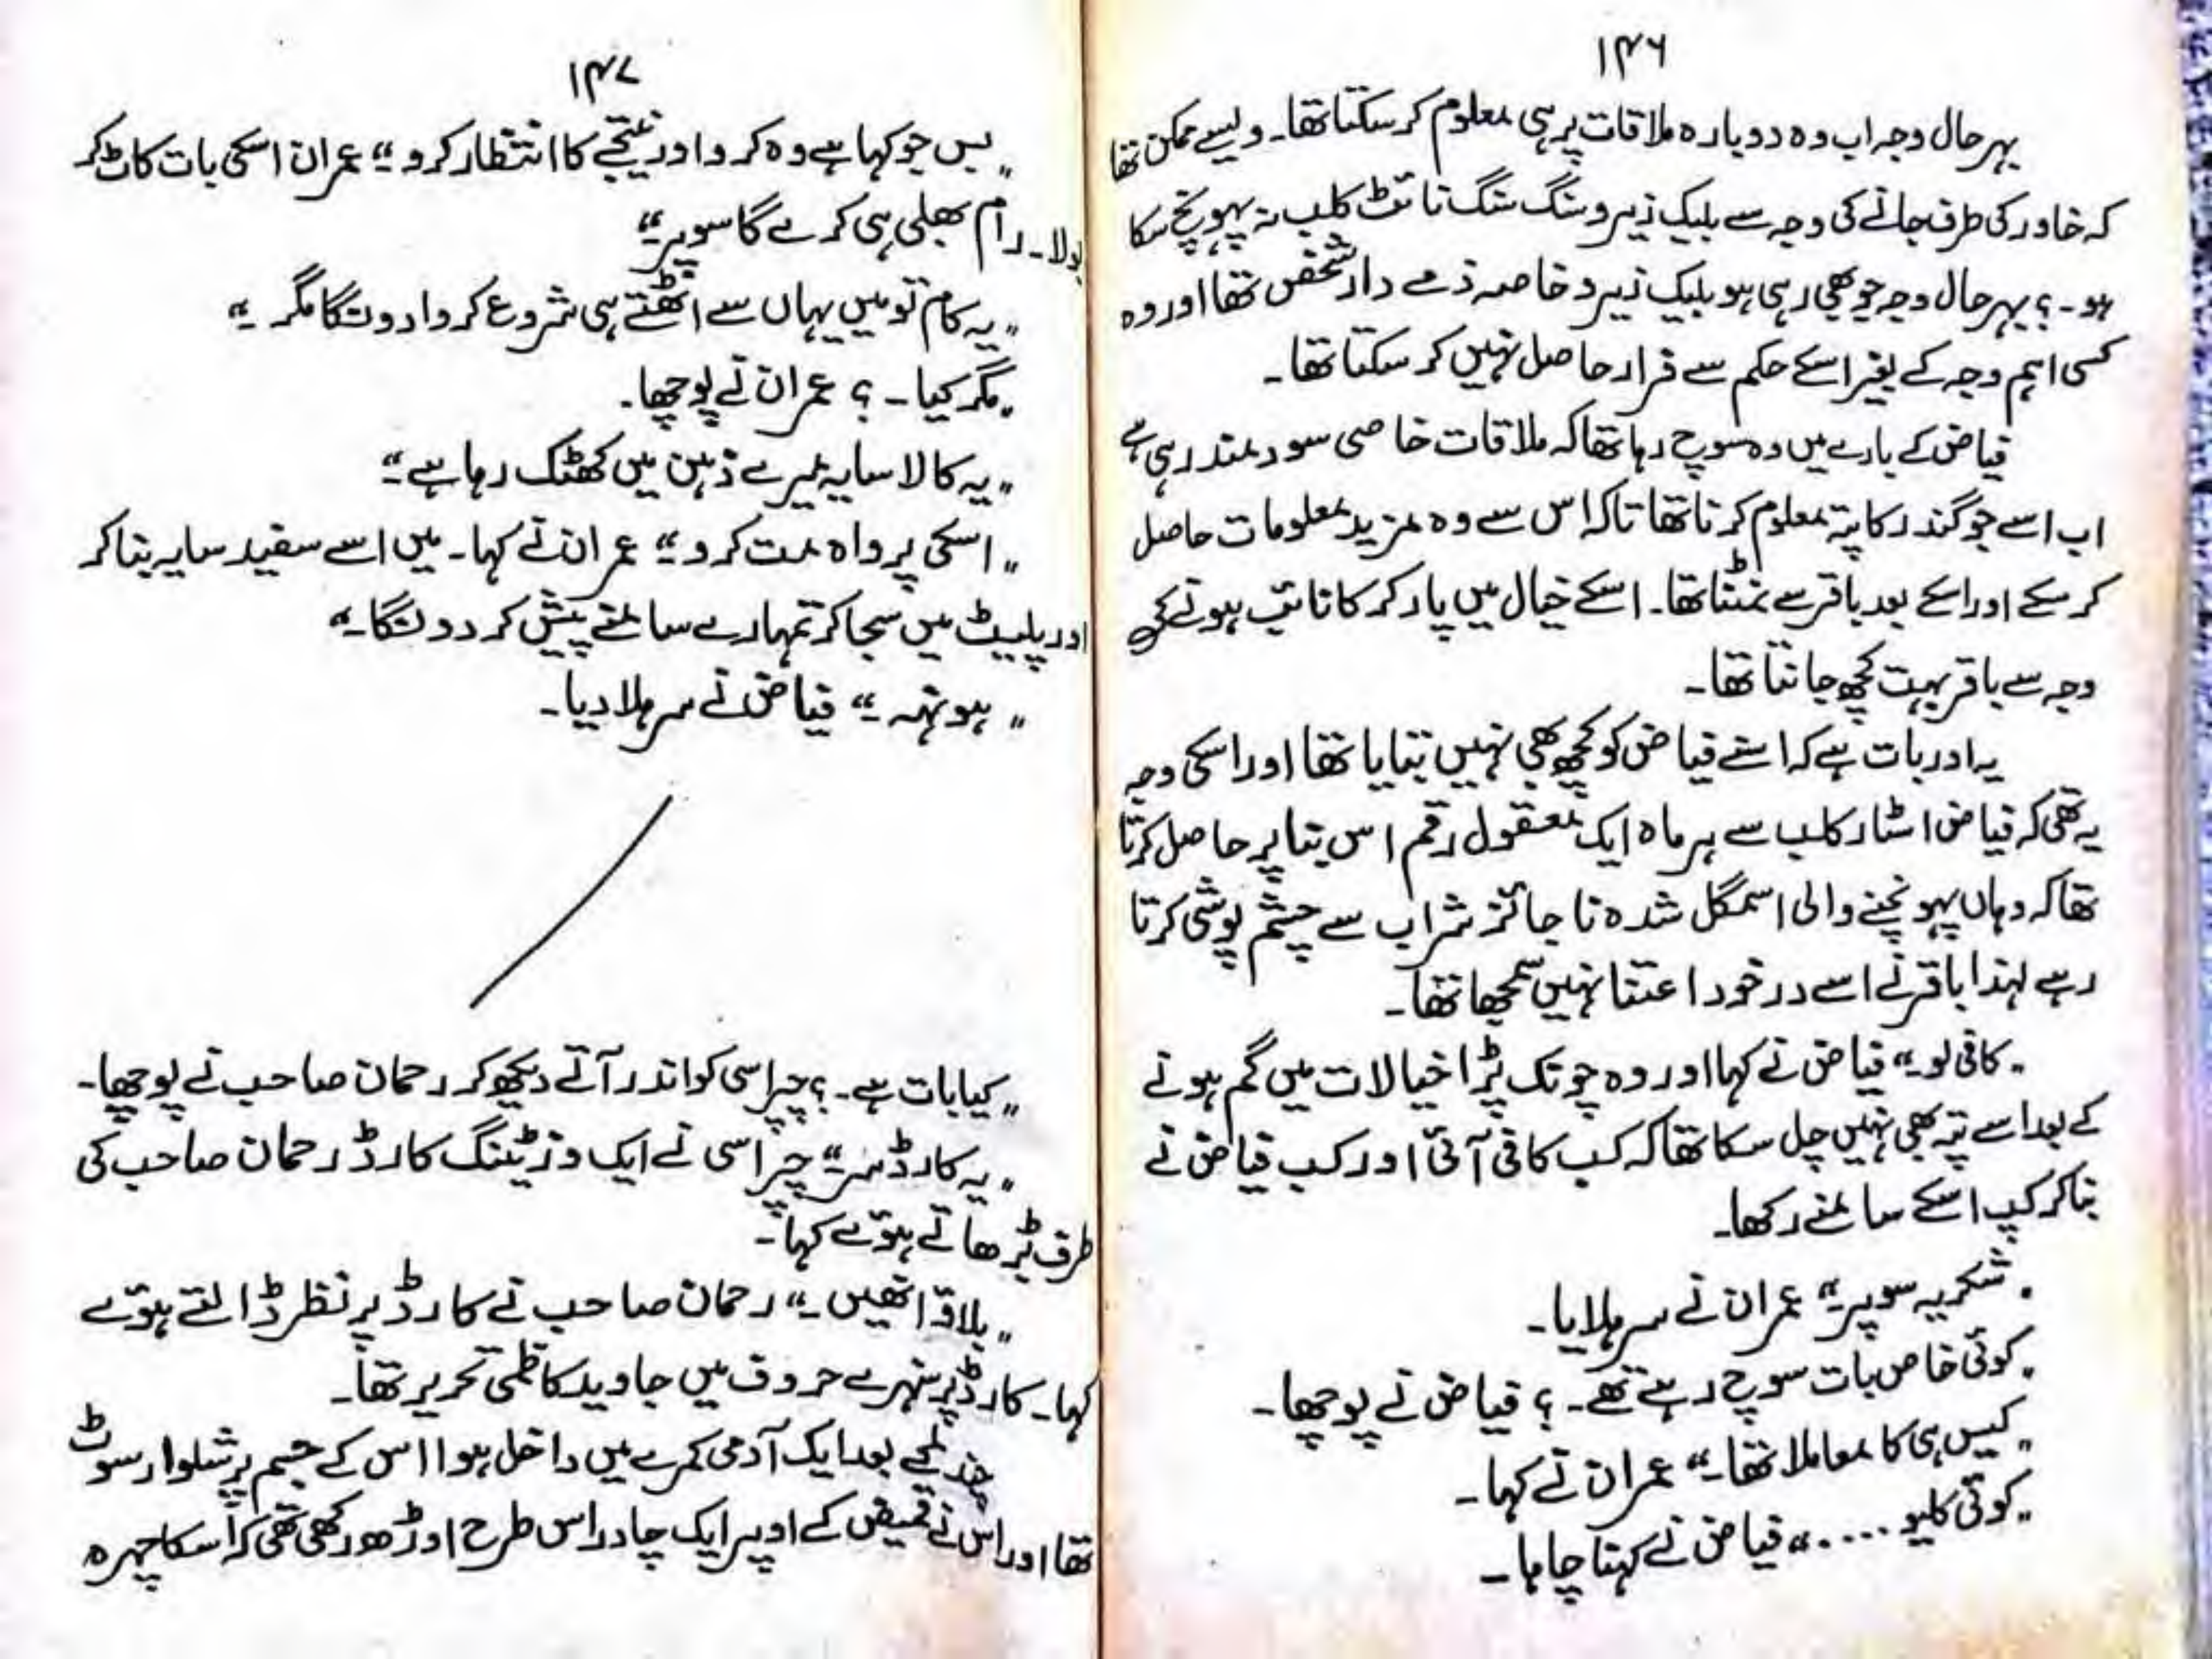 ۱۴۶
بہرحال وجہ اب وہ دوبارہ ملاقات پر ہی معلوم کر سکتا تھا۔ ویسے ممکن تھا
کہ خاور کی طرف جانے کی وجہ سے بلیک زیرو سنگ سنگ نائٹ کلب نہ پہونچ سکا
ہو۔ ؟ بہرحال وجہ جو بھی رہی ہو بلیک زیرو خاصہ ذمے دار شخص تھا اور وہ
کسی اہم وجہ کے بغیر اسکے حکم سے فرار حاصل نہیں کر سکتا تھا۔
فیاض کے بارے میں وہ سوچ رہا تھا کہ ملاقات خاصی سود مند رہی ہے
اب اسے جوگندر کا پتہ معلوم کرنا تھا تاکہ اس سے وہ مزید معلومات حاصل
کر سکے اور اسکے بعد باقر سے نمٹنا تھا۔ اسکے خیال میں پارکر کا نائب ہونے کی
وجہ سے باقر بہت کچھ جانتا تھا۔
یہ اور بات ہے کہ اسنے فیاض کو کچھ بھی نہیں بتایا تھا اور اسکی وجہ
یہ تھی کہ فیاض اسٹار کلب سے ہر ماہ ایک معقول رقم اس بنا پر حاصل کرتا
تھا کہ وہاں پہونچنے والی اسمگل شدہ ناجائز شراب سے چشم پوشی کرتا
رہے لہٰذا باقر نے اسے در خود اعتنا نہیں سمجھا تھا۔
"کافی لو۔" فیاض نے کہا اور وہ چونک پڑا خیالات میں گم ہونے
کے بعد اسے پتہ بھی نہیں چل سکا تھا کہ کب کافی آئی اور کب فیاض نے
بناکر کپ اسکے سامنے رکھا۔
"شکریہ سوپر۔" عمران نے سر ہلایا۔
"کوئی خاص بات سوچ رہے تھے۔ ؟ فیاض نے پوچھا۔
"کیس ہی کا معاملا تھا۔" عمران نے کہا۔
"کوئی کلیو ...." فیاض نے کہنا چاہا۔
۱۴۷
"بس جو کہا ہے وہ کرو اور نتیجے کا انتظار کرو۔" عمران اسکی بات کاٹ کر
بولا۔ رام بھلی ہی کرے گا سوپر۔"
"یہ کام تو میں یہاں سے اٹھتے ہی شروع کروا دونگا مگر ۔"
"مگر کیا۔ ؟ عمران نے پوچھا۔
"یہ کالا سایہ میرے ذہن میں کھٹک رہا ہے۔"
"اسکی پرواہ مت کرو۔" عمران نے کہا۔ میں اسے سفید سایہ بناکر
اور پلیٹ میں سجا کر تمہارے سامنے پیش کر دونگا۔"
"ہونہہ۔" فیاض نے سر ہلا دیا۔
"کیا بات ہے۔ ؟ چپراسی کو اندر آتے دیکھ کر رحمان صاحب نے پوچھا۔
"یہ کارڈ سر۔" چپراسی نے ایک وزیٹنگ کارڈ رحمان صاحب کی
طرف بڑھاتے ہوئے کہا۔
"بلاؤ انھیں۔" رحمان صاحب نے کارڈ پر نظر ڈالتے ہوئے
کہا۔ کارڈ پر سنہرے حروف میں جاوید کاظمی تحریر تھا۔
چند لمحے بعد ایک آدمی کمرے میں داخل ہوا اس کے جسم پر شلوار سوٹ
تھا اور اس نے قمیض کے اوپر ایک چادر اس طرح اوڑھ رکھی تھی کہ اسکا چہرہ